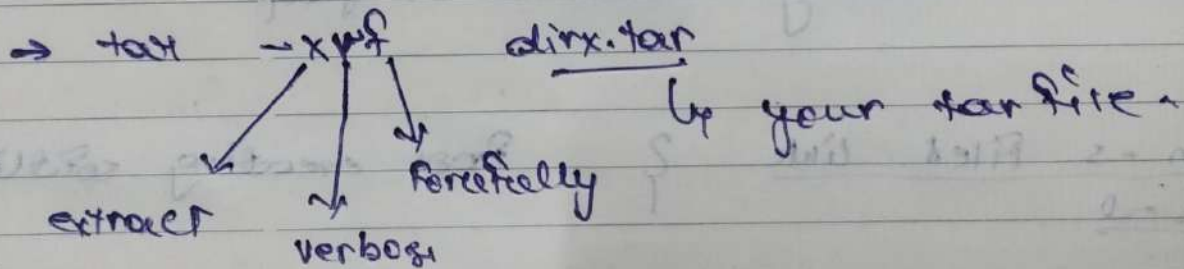 → tar -xvf dirx.tar
↳ your tar file.
extract
verbose
forcefully